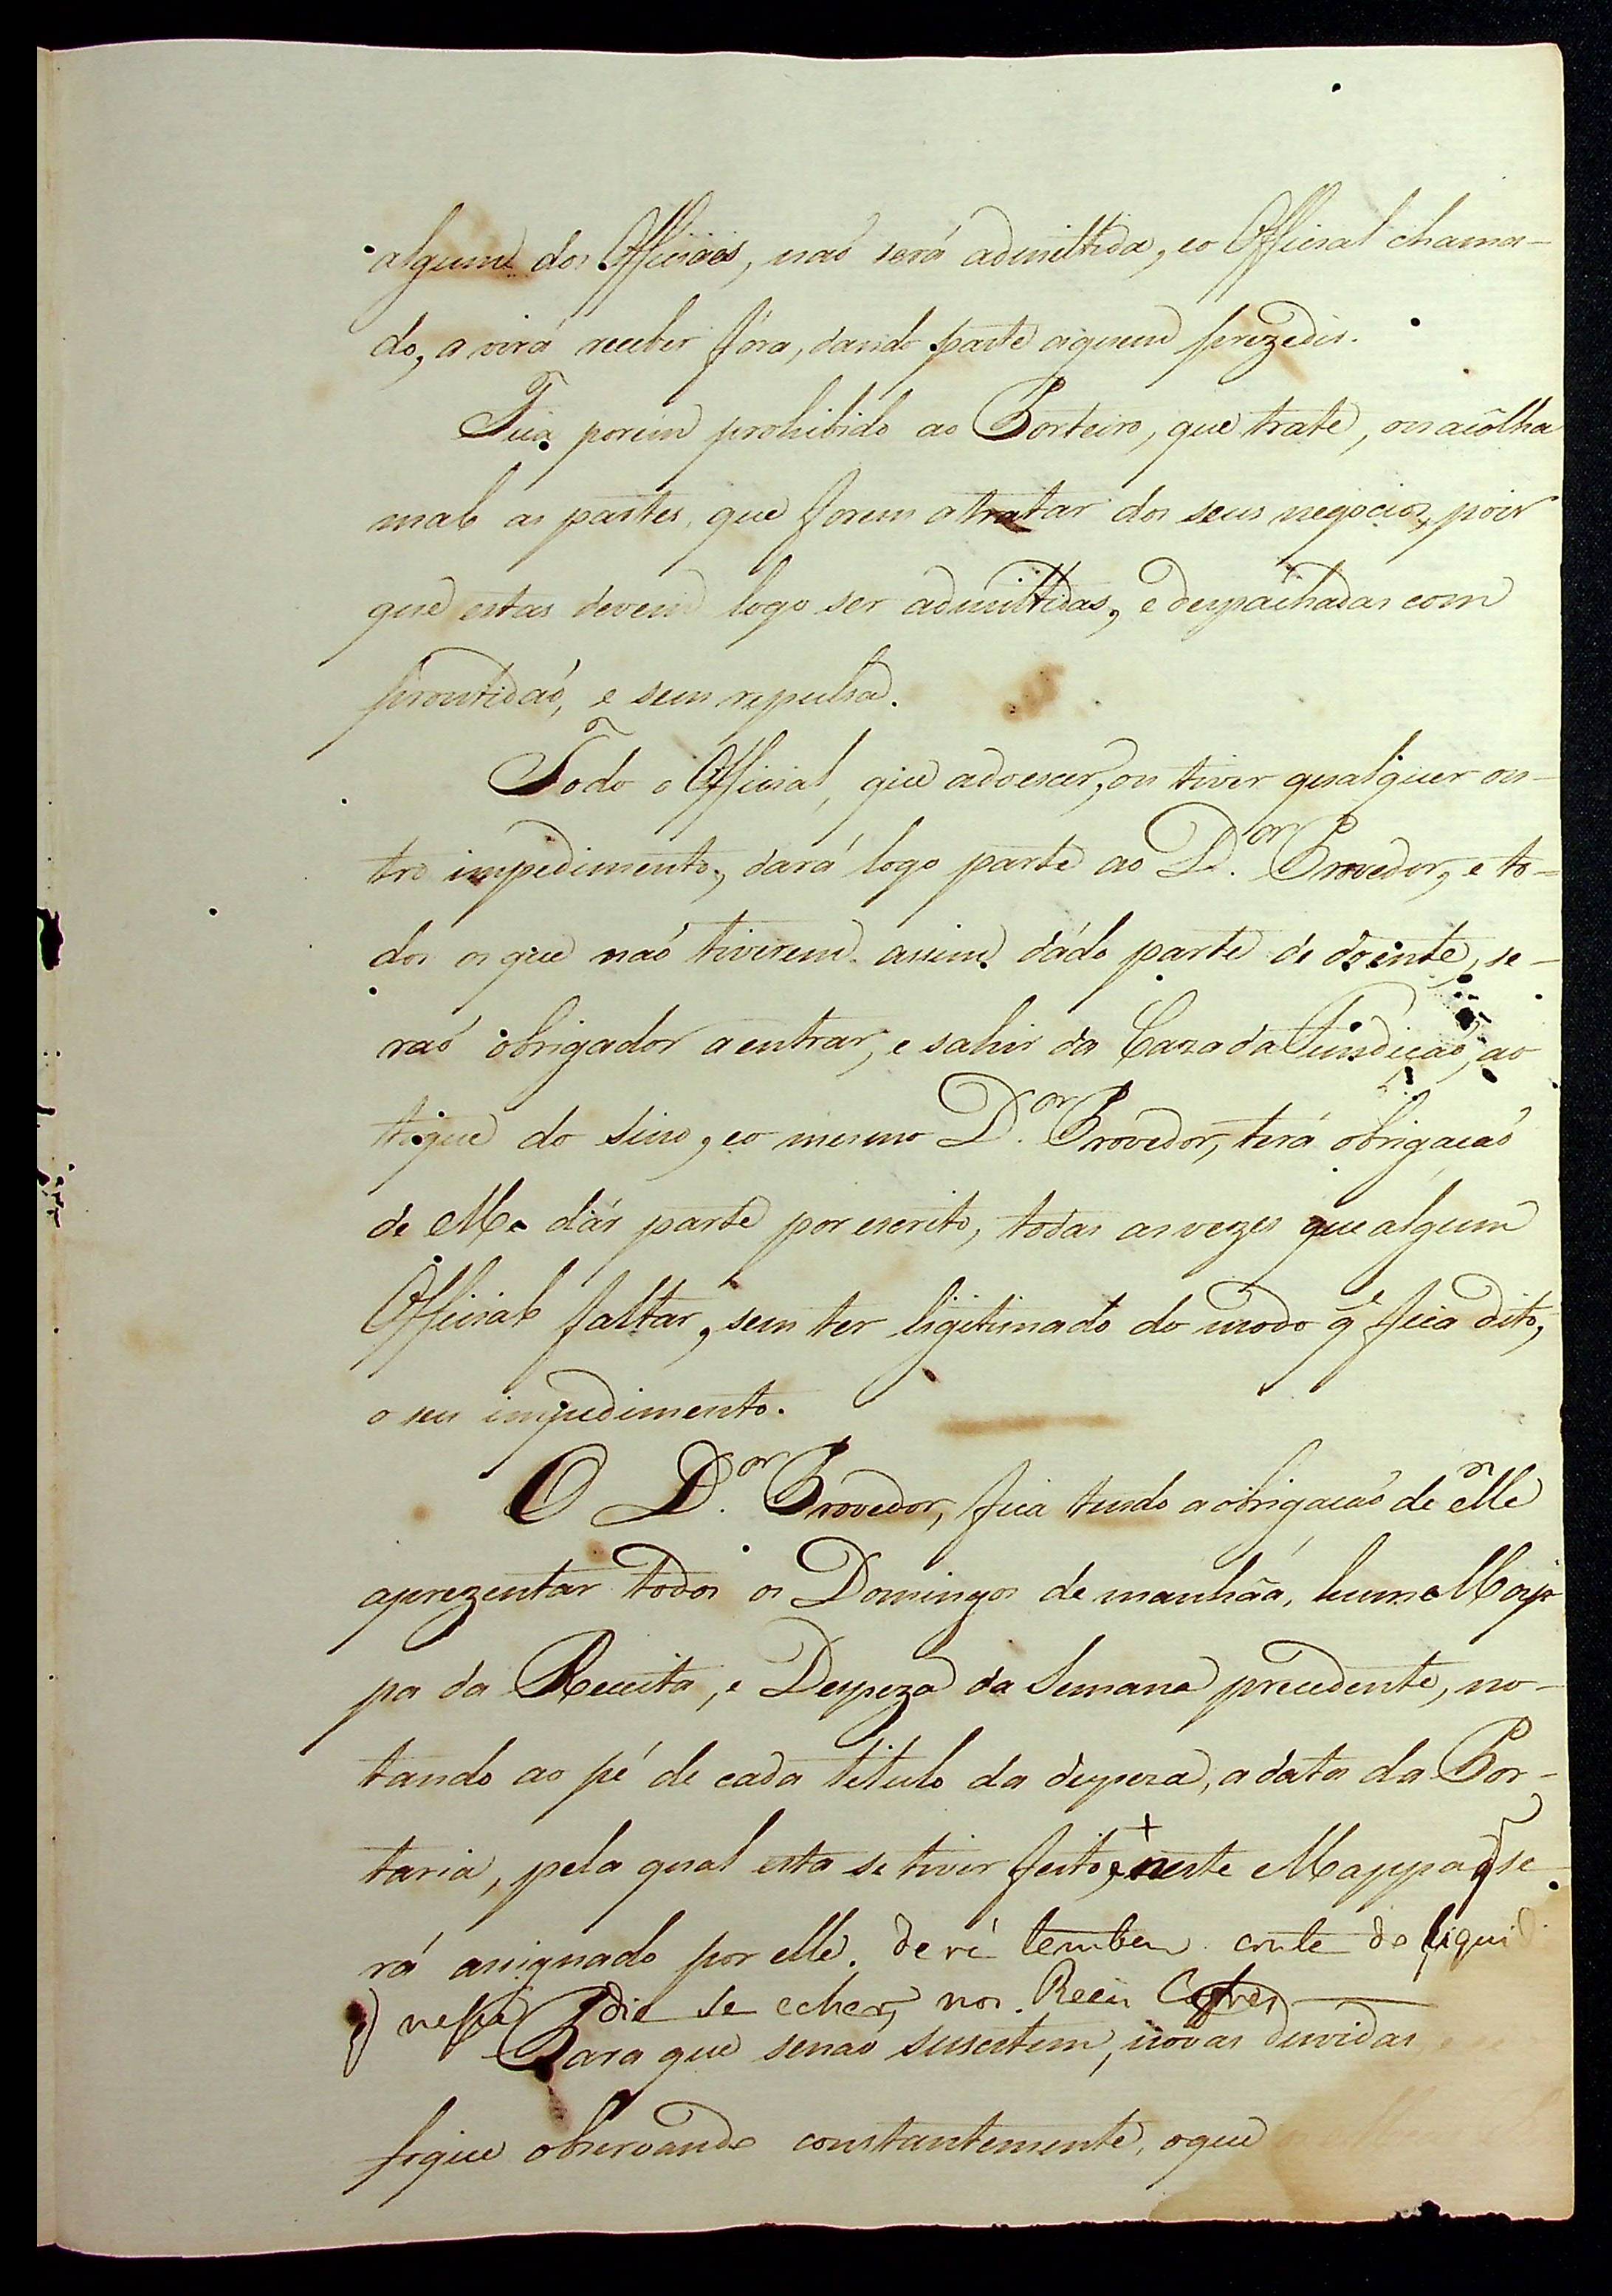 algum dos Officiaes, naõ será admittida, eo Official chama-
do, a virá receber fóra, dando parte aquem prezedir.
Fica porém prohibido ao Porteiro, que trate, ou acôlha
mal as partes, que forem a tratar dos seus negocios, por
que estas devem logo ser admittidas, e despachadas com
promtidaõ, e sem repulsa.
Todo o Official, que adoescer, ou tiver qualquer ou-
tro impedimento, dará logo parte ao D.or Provedor, e to-
dos os que naõ tiverem assim dádo parte de doente, se-
raõ obrigados a entrar, e sahir da Caza da Fundiçaõ, ao
tóque do sino, eo mesmo D.or Provedor, terá obrigacaõ
de Me dár parte por escrito, todas as vezes que algum
Official faltar, sem ter ligitimado do modo q̃ fica dito,
o seu impedimento.
O D.or Provedor, fica tendo a obrigacaõ de Me
aprezentar todos os Domingos de manhãa, hum Map-
pa da Receita, e Despeza da Semana precedente, no-
tando ao pé de cada titulo da despeza, a data da Por-
taria, pela qual esta se tiver feito, e neste Mappa q̃ se-
rá assignado por elle. derá tembem conta do liquid
q̃ nesse dia se achar, nos Reaes Cofres
Para que senaõ suscitem, nóvas duvidas
fique observando constantemente, oque